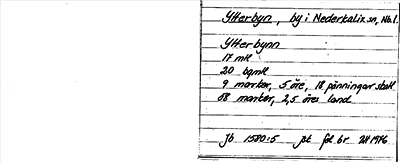 Ytterbyn, by i Nederkalix sn, Nb.l.
Ytterbynn
17 mk
20 bgmk
9 marker, 5 öre, 18 pänningar skatt
08 marker, 2,5 öres land
Jb 1580:5